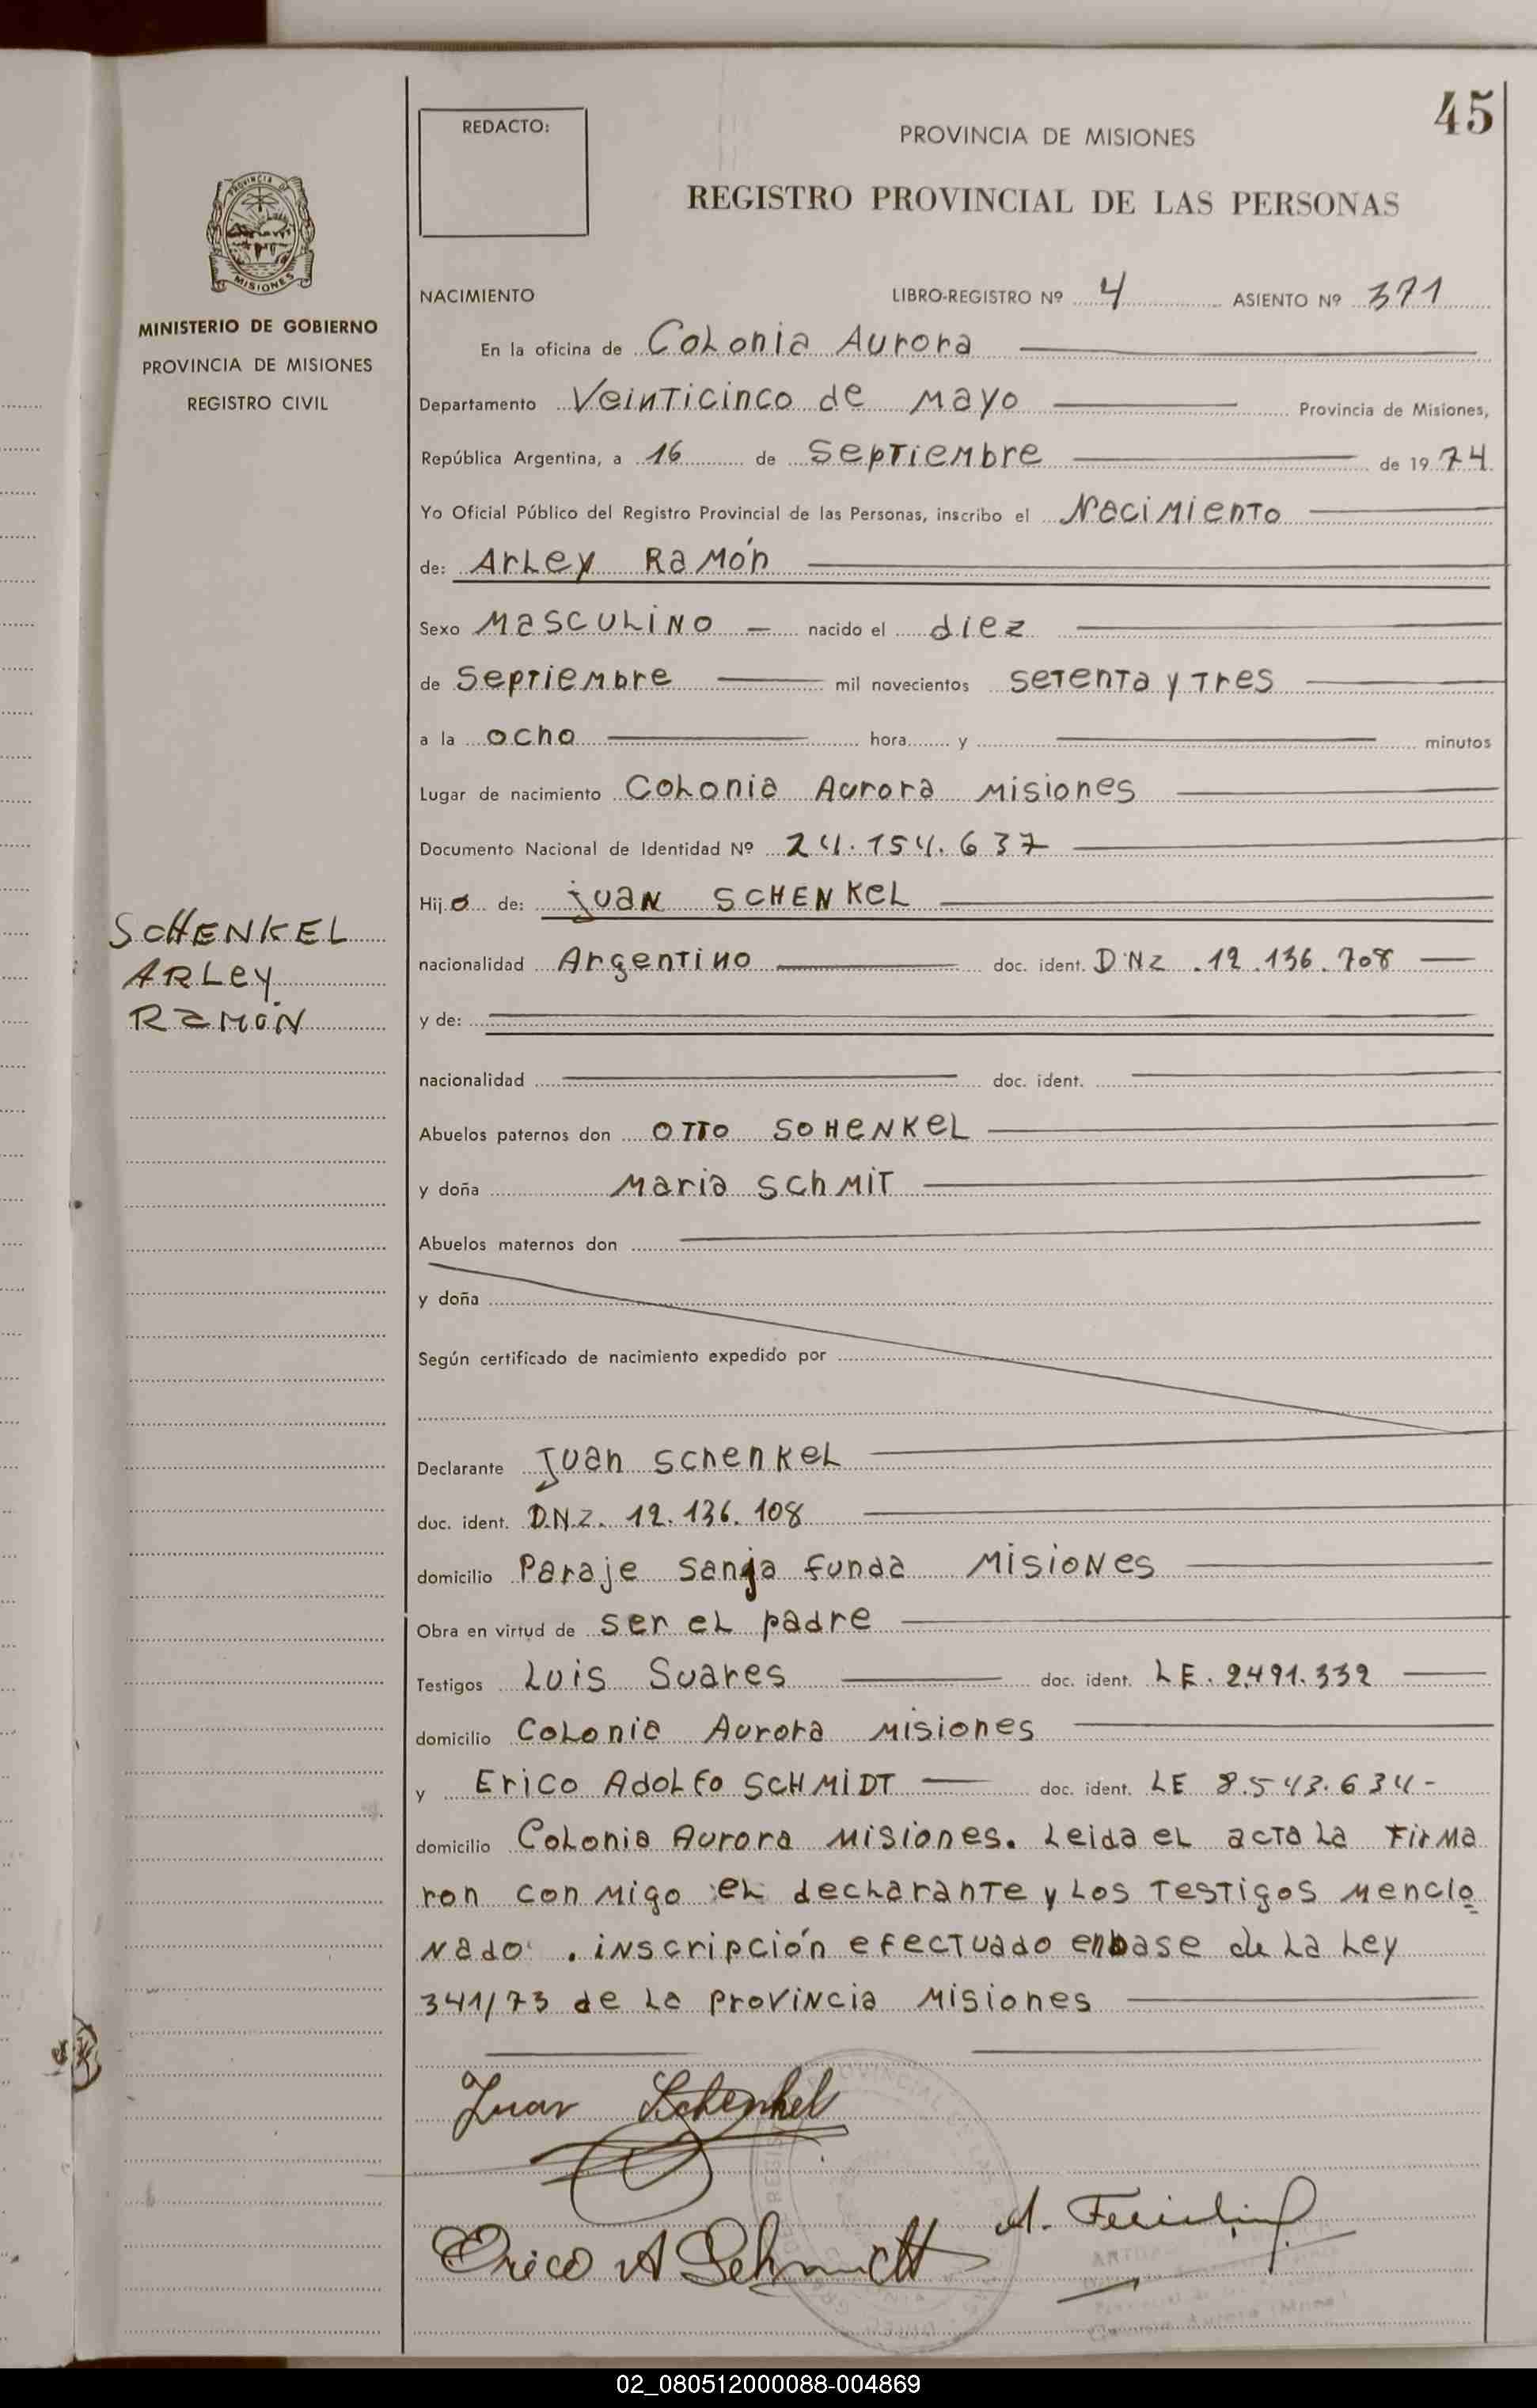 45
REDACTO:
PROVINCIA DE MISIONES
REGISTRO PROVINCIAL DE LAS PERSONAS
PROVINCIA DE
MISIONES
MINISTERIO DE GOBIERNO
PROVINCIA DE MISIONES
REGISTRO CIVIL
NACIMIENTO LIBRO-REGISTRO Nº 4 ASIENTO Nº 371
En la oficina de Colonia Aurora
Departamento Veinticinco de Mayo Provincia de Misiones,
República Argentina, a 16 de Septiembre de 1974
Yo Oficial Público del Registro Provincial de las Personas, inscribo el Nacimiento
de: Arley Ramón
Sexo Masculino nacido el diez
de Septiembre mil novecientos setenta y tres
a la ocho hora y minutos
Lugar de nacimiento Colonia Aurora Misiones
Documento Nacional de Identidad Nº 24.154.637
Hijo de: Juan SCHENKEL
SCHENKEL
ARLey
Ramón
nacionalidad Argentino doc. ident. DNI .12.136.708
y de:
nacionalidad doc. ident.
Abuelos paternos don Otto SOHENKEL
y doña Maria Schmit
Abuelos maternos don
y doña
Según certificado de nacimiento expedido por
Declarante Juan Schenkel
doc. ident. D.N.I. 12.136.108
domicilio Paraje Sanja funda Misiones
Obra en virtud de ser el padre
Testigos Luis Suares doc. ident. LE. 2.491.332
domicilio Colonia Aurora Misiones
y Erico Adolfo SCHMIDT doc. ident. LE 8.543.634-
domicilio Colonia Aurora Misiones. Leida el acta la firma
ron con migo el declarante y los testigos mencio
nado . inscripción efectuado enbase de la Ley
341/73 de la provincia Misiones
Juan Schenkel
Erico A Schmidt
02_080512000088-004869